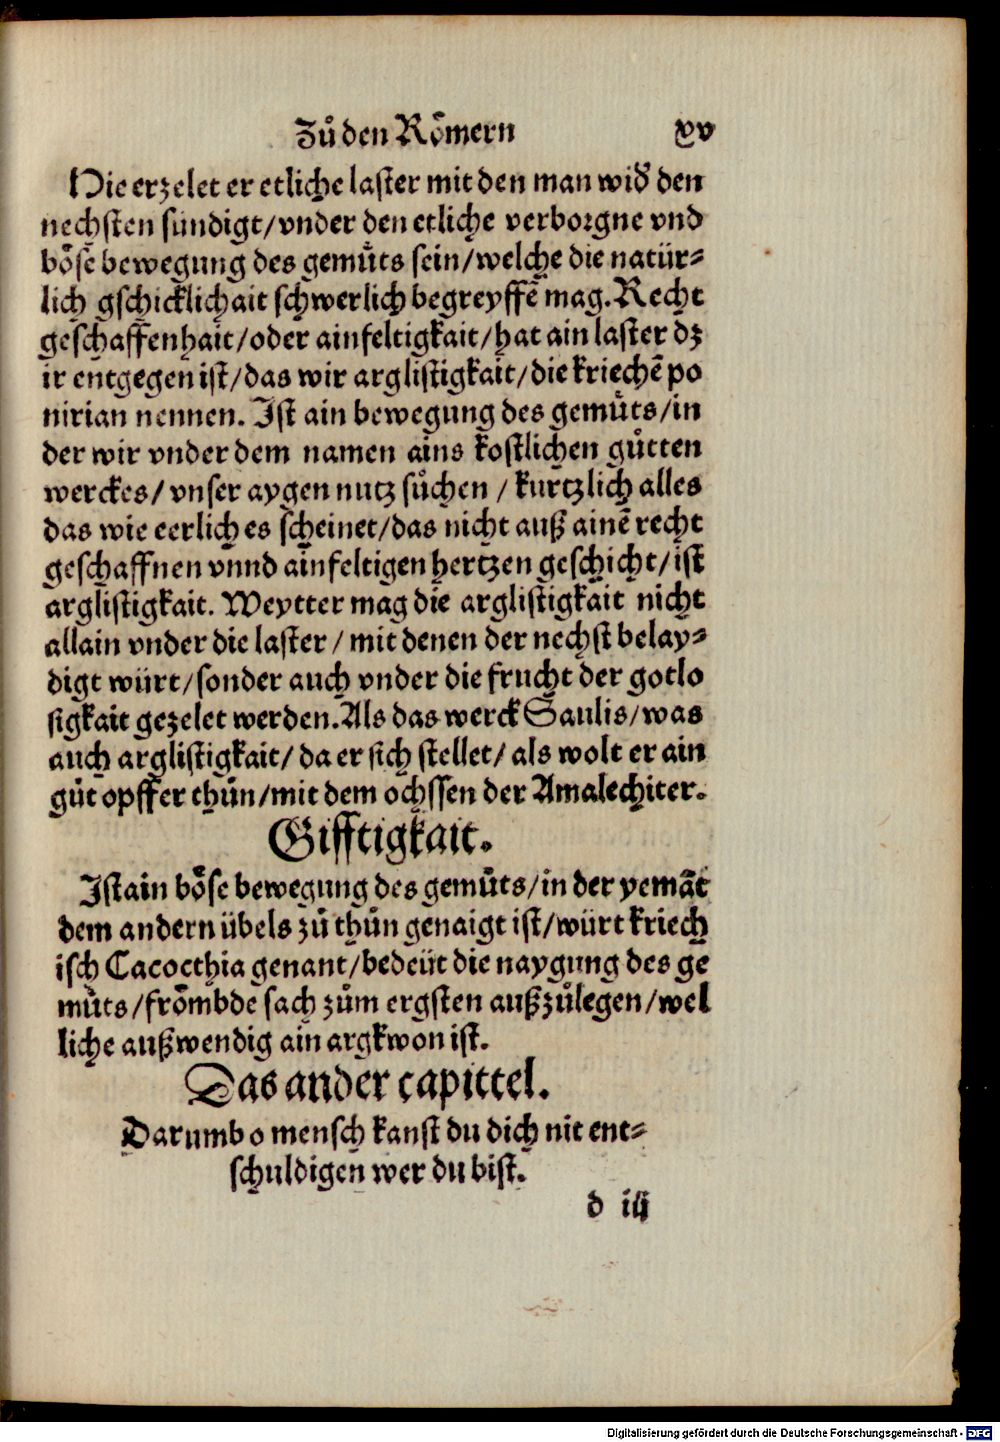 Zů den Rômern xv
Hie erzelet er etliche laster mit den man wid̾ den
nechsten sündigt/vnder den etliche verborgne vnd
bôse bewegung des gemůts sein/welche die natür⸗
lich gschicklichait schwerlich begreyffē mag. Recht
geschaffenhait/oder ainfeltigkait/hat ain laster dz
ir entgegen ist/das wir arglistigkait/die kriechē po
nirian nennen. Ist ain bewegung des gemůts/in
der wir vnder dem namen ains kostlichen gůtten
werckes/vnser aygen nutz sůchen/kurtzlich alles
das wie eerlich es scheinet/das nicht auß ainē recht
geschaffnen vnnd ainfeltigen hertzen geschicht/ist
arglistigkait. Weytter mag die arglistigkait nicht
allain vnder die laster/mit denen der nechst belay⸗
digt würt/sonder auch vnder die frucht der gotlo
sigkait gezelet werden. Als das werck Saulis/was
auch arglistigkait/da er sich stellet/als wolt er ain
gůt opffer thůn/mit dem ochssen der Amalechiter.
Gifftigkait.
Ist ain bôse bewegung des gemůts/in der yemāt
dem andern übels zů thůn genaigt ist/würt kriech
isch Cacocthia genant/bedeüt die naygung des ge
můts/frômbde sach zům ergsten außzůlegen/wel
liche außwendig ain argkwon ist.
Das ander capittel.
Darumb o mensch kanst du dich nit ent⸗
schuldigen wer du bist.
d iij
Digitalisierung gefördert durch die Deutsche Forschungsgemeinschaft - DFG